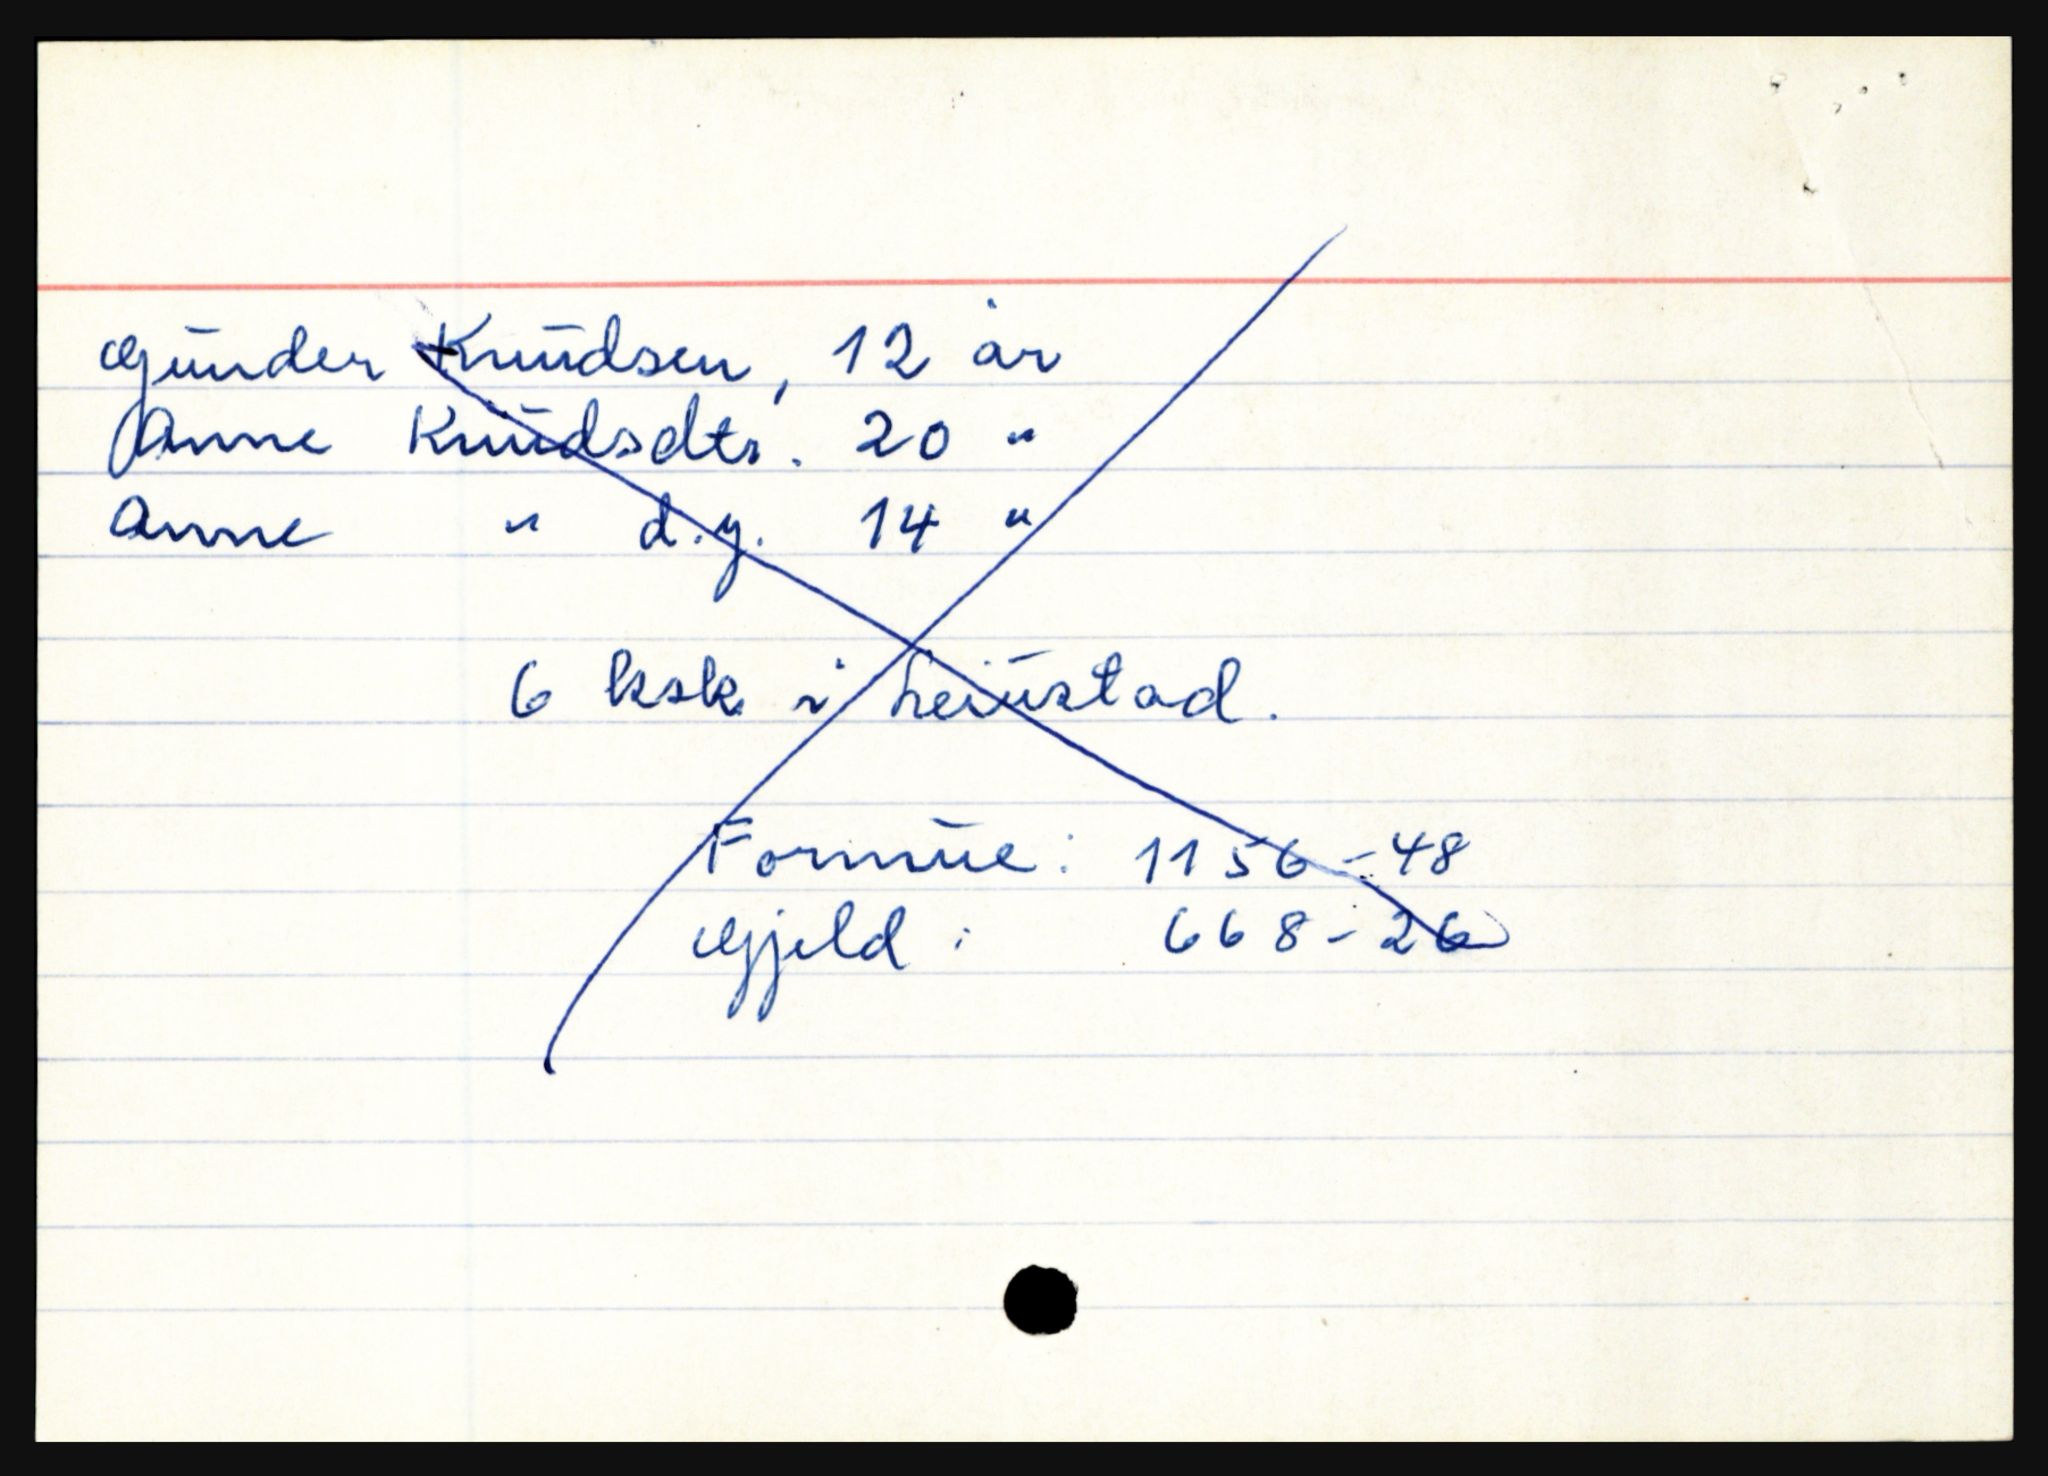 Gunder Knudsen, 12 år
Anne Knudsdtr. 20 "
Anne " d.y. 14 "
6 ksk i Leiustad.
Formue: 1156-48
Gjeld: 668-26